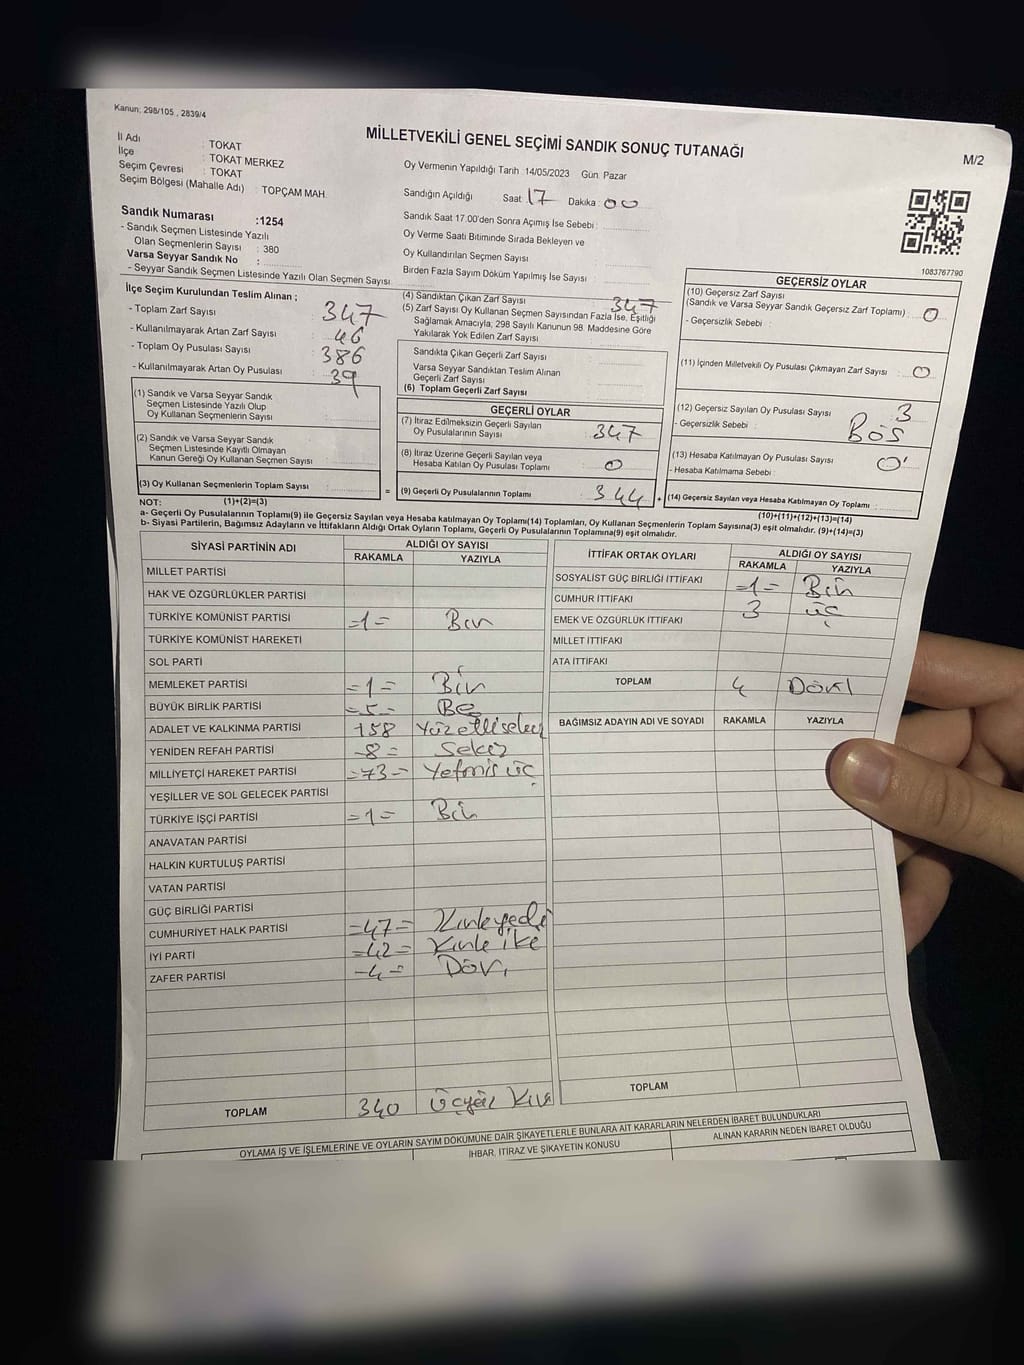 Kanun: 298/105 , 2839/4
MİLLETVEKİLİ GENEL SEÇİMİ SANDIK SONUÇ TUTANAĞI
M/2
İl Adı : TOKAT
İlçe : TOKAT MERKEZ
Seçim Çevresi : TOKAT
Seçim Bölgesi (Mahalle Adı) : TOPÇAM MAH.
Sandık Numarası :1254
- Sandık Seçmen Listesinde Yazılı
Olan Seçmenlerin Sayısı : 380
Varsa Seyyar Sandık No :
- Seyyar Sandık Seçmen Listesinde Yazılı Olan Seçmen Sayısı
Oy Vermenin Yapıldığı Tarih :14/05/2023 Gün: Pazar
Sandığın Açıldığı Saat: 17 Dakika : 00
Sandık Saat 17.00'den Sonra Açımış İse Sebebi :
Oy Verme Saati Bitiminde Sırada Bekleyen ve
Oy Kullandırılan Seçmen Sayısı
Birden Fazla Sayım Döküm Yapılmış İse Sayısı
1083767790
İlçe Seçim Kurulundan Teslim Alınan ;
- Toplam Zarf Sayısı : 347
- Kullanılmayarak Artan Zarf Sayısı : 46
- Toplam Oy Pusulası Sayısı : 386
- Kullanılmayarak Artan Oy Pusulası : 39
(1) Sandık ve Varsa Seyyar Sandık
Seçmen Listesinde Yazılı Olup
Oy Kullanan Seçmenlerin Sayısı
(2) Sandık ve Varsa Seyyar Sandık
Seçmen Listesinde Kayıtlı Olmayan
Kanun Gereği Oy Kullanan Seçmen Sayısı
(3) Oy Kullanan Seçmenlerin Toplam Sayısı
(1)+(2)=(3)
(4) Sandıktan Çıkan Zarf Sayısı 347
(5) Zarf Sayısı Oy Kullanan Seçmen Sayısından Fazla İse, Eşitliği
Sağlamak Amacıyla, 298 Sayılı Kanunun 98. Maddesine Göre
Yakılarak Yok Edilen Zarf Sayısı
Sandıkta Çıkan Geçerli Zarf Sayısı
Varsa Seyyar Sandıktan Teslim Alınan
Geçerli Zarf Sayısı
(6) Toplam Geçerli Zarf Sayısı
GEÇERLİ OYLAR
(7) İtiraz Edilmeksizin Geçerli Sayılan
Oy Pusulalarının Sayısı : 347
(8) İtiraz Üzerine Geçerli Sayılan veya
Hesaba Katılan Oy Pusulası Toplamı : 0
= (9) Geçerli Oy Pusulalarının Toplamı : 344 +
GEÇERSİZ OYLAR
(10) Geçersiz Zarf Sayısı
(Sandık ve Varsa Seyyar Sandık Geçersiz Zarf Toplamı) : 0
- Geçersizlik Sebebi :
(11) İçinden Milletvekili Oy Pusulası Çıkmayan Zarf Sayısı : 0
(12) Geçersiz Sayılan Oy Pusulası Sayısı : 3
- Geçersizlik Sebebi : BOŞ
(13) Hesaba Katılmayan Oy Pusulası Sayısı : 0
- Hesaba Katılmama Sebebi :
(14) Geçersiz Sayılan veya Hesaba Katılmayan Oy Toplamı :
(10)+(11)+(12)+(13)=(14)
NOT:
a- Geçerli Oy Pusulalarının Toplamı(9) ile Geçersiz Sayılan veya Hesaba katılmayan Oy Toplamı(14) Toplamları, Oy Kullanan Seçmenlerin Toplam Sayısına(3) eşit olmalıdır. (9)+(14)=(3)
b- Siyasi Partilerin, Bağımsız Adayların ve İttifakların Aldığı Oy Toplamı, Geçerli Oy Pusulalarının Toplamına(9) eşit olmalıdır.
SİYASİ PARTİNİN ADI ALDIĞI OY SAYISI
RAKAMLA YAZIYLA
MİLLET PARTİSİ
HAK VE ÖZGÜRLÜKLER PARTİSİ
TÜRKİYE KOMÜNİST PARTİSİ =1= Bir
TÜRKİYE KOMÜNİST HAREKETİ
SOL PARTİ
MEMLEKET PARTİSİ =1= Bir
BÜYÜK BİRLİK PARTİSİ =5= Beş
ADALET VE KALKINMA PARTİSİ 158 Yüzellisekiz
YENİDEN REFAH PARTİSİ =8= Sekiz
MİLLİYETÇİ HAREKET PARTİSİ =73= Yetmiş üç
YEŞİLLER VE SOL GELECEK PARTİSİ
TÜRKİYE İŞÇİ PARTİSİ =1= Bir
ANAVATAN PARTİSİ
HALKIN KURTULUŞ PARTİSİ
VATAN PARTİSİ
GÜÇ BİRLİĞİ PARTİSİ
CUMHURİYET HALK PARTİSİ =47= Kırkyedi
İYİ PARTİ =42= Kırk iki
ZAFER PARTİSİ =4= Dört
TOPLAM 340 Üçyüz Kırk
İTTİFAK ORTAK OYLARI ALDIĞI OY SAYISI
RAKAMLA YAZIYLA
SOSYALİST GÜÇ BİRLİĞİ İTTİFAKI =1= Bir
CUMHUR İTTİFAKI 3 üç
EMEK VE ÖZGÜRLÜK İTTİFAKI
MİLLET İTTİFAKI
ATA İTTİFAKI
TOPLAM 4 Dört
BAĞIMSIZ ADAYIN ADI VE SOYADI RAKAMLA YAZIYLA
TOPLAM
OYLAMA İŞ VE İŞLEMLERİNE VE OYLARIN SAYIM DÖKÜMÜNE DAİR ŞİKAYETLERLE BUNLARA AİT KARARLARIN NELERDEN İBARET BULUNDUKLARI
İHBAR, İTİRAZ VE ŞİKAYETİN KONUSU
ALINAN KARARIN NEDEN İBARET OLDUĞU